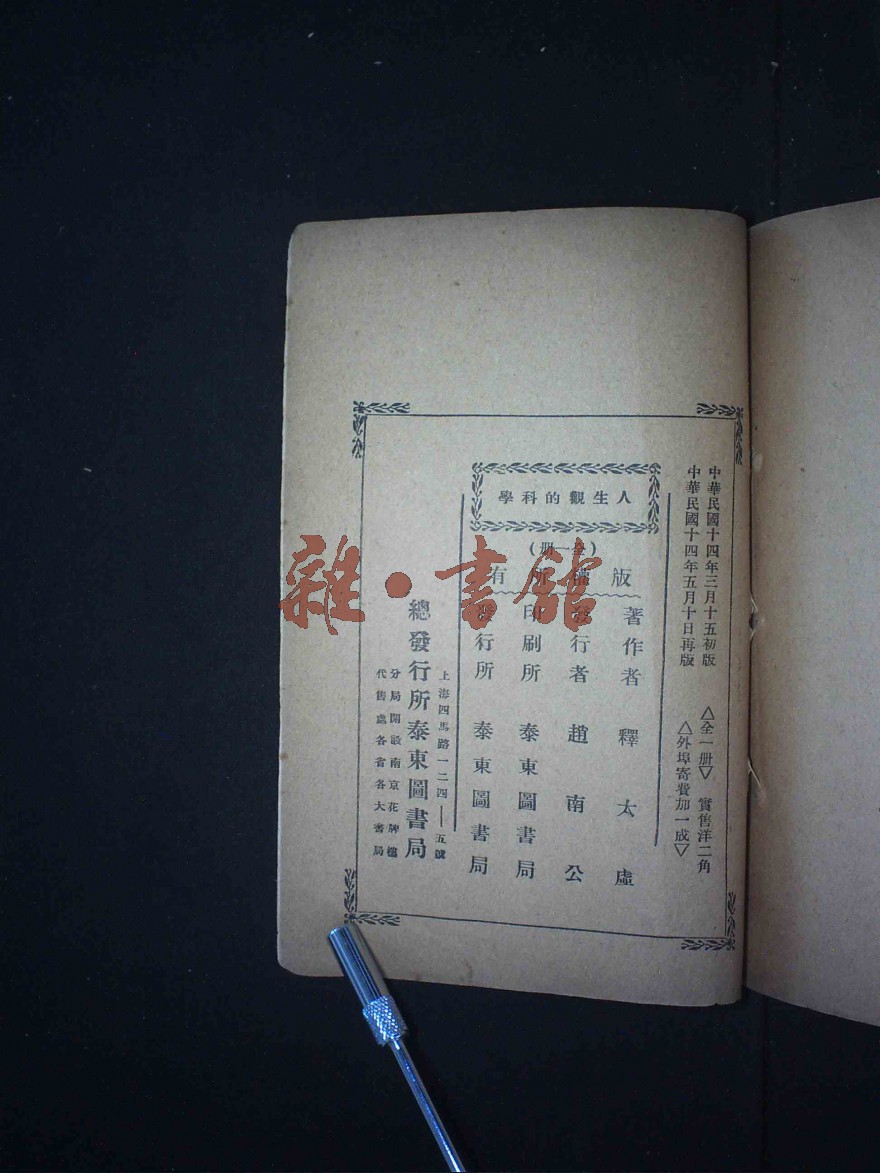 中華民國十四年三月十五初版
中華民國十四年五月十日再版
△全一册▽ 實售洋二角
△外埠寄費加一成▽
人生觀的科學
(全一册)
版權所有
著作者 釋太虛
發行者 趙南公
印刷所 泰東圖書局
發行所 泰東圖書局
上海四馬路一二四——五號
總發行所泰東圖書局
分局開設南京花牌樓
代售處各省各大書局
雜·書館